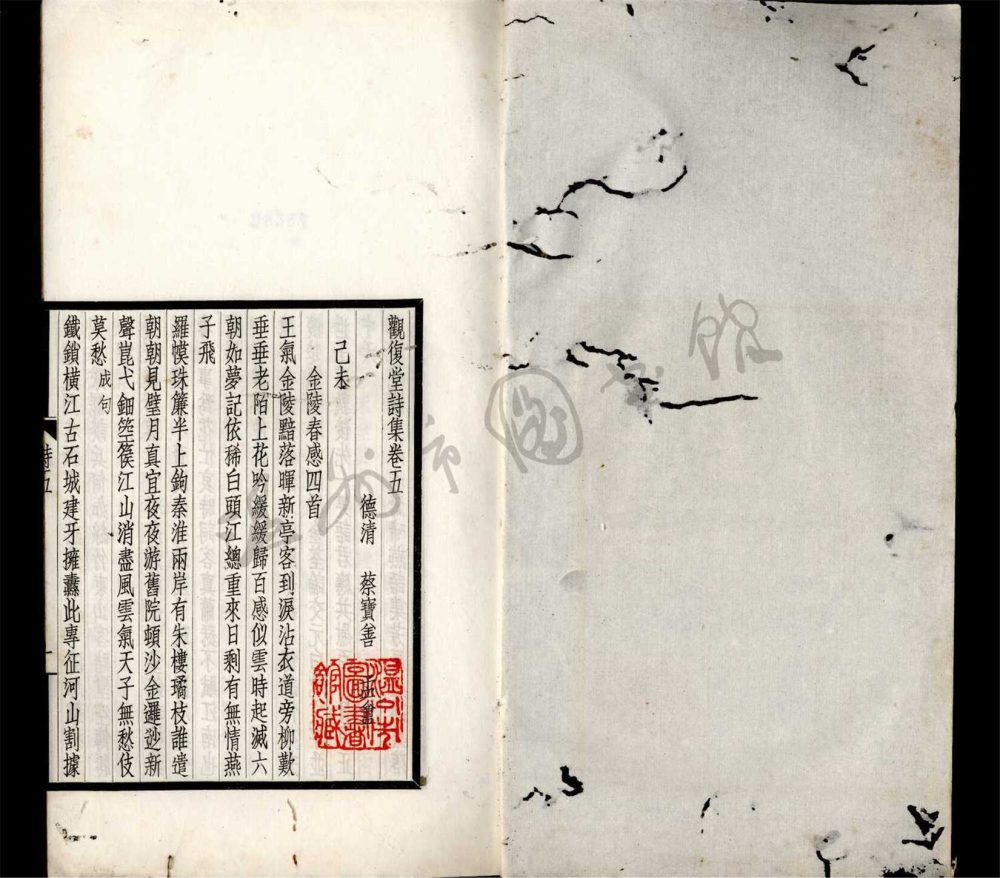 觀復堂詩集卷五
德清 蔡寶善 孟盦
己未
金陵春感四首
王氣金陵黯落暉新亭客到淚沾衣道旁柳歎
垂垂老陌上花吟緩緩歸百感似雲時起滅六
朝如夢記依稀白頭江總重來日剩有無情燕
子飛
羅幙珠簾半上鉤秦淮兩岸有朱樓璚枝誰遣
朝朝見璧月真宜夜夜游舊院頓沙金邏逤新
聲崑弋鈿箜篌江山消盡風雲氣天子無愁伎
莫愁成句
鐵鎖橫江古石城建牙擁纛此專征河山割據
詩五
一
溫州市圖書館藏
溫州市圖書館